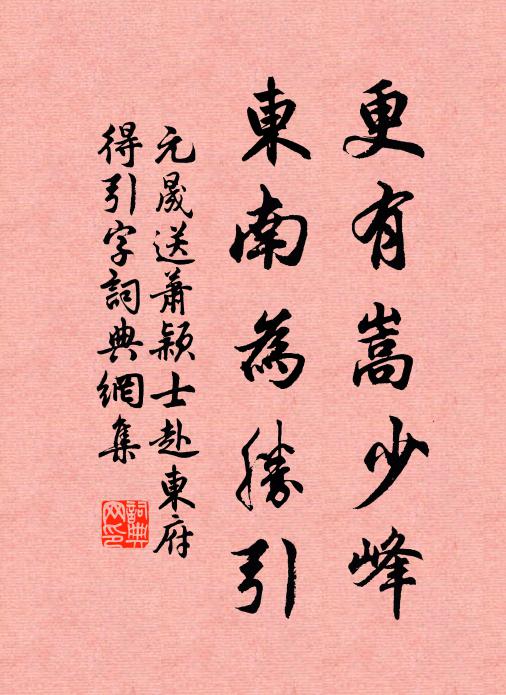 更有嵩少峰
東南為勝引
元晟送蕭颖士赴東府
得引字詞典網集
詞典
网印